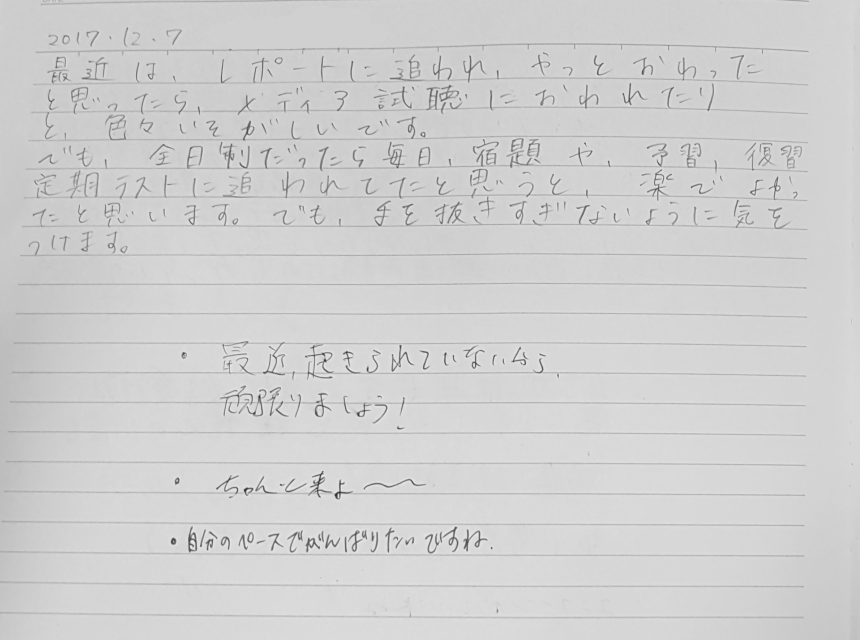 2017.12.7
最近は、レポートに追われ、やっとおわった
と思ったら、メディア試聴におわれたり
と、色々いそがしいです。
でも、全日制だったら毎日、宿題や、予習、復習
定期テストに追われてたと思うと、楽でよかっ
たと思います。でも、手を抜きすぎないように気を
つけます。
・最近、起きられていないから、
頑張りましょう!
・ちゃんと来よ〜〜
・自分のペースでがんばりたいですね。